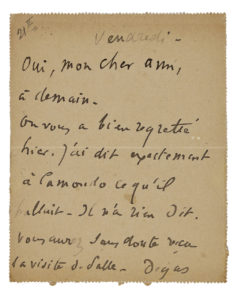 Vendredi -
Oui, mon cher ami,
à demain -
On vous a bien regretté
hier. J'ai dit exactement
à Camondo ce qu'il
fallait - Il n'a rien dit.
Vous aurez sans doute reçu
la visite de Salle - Degas